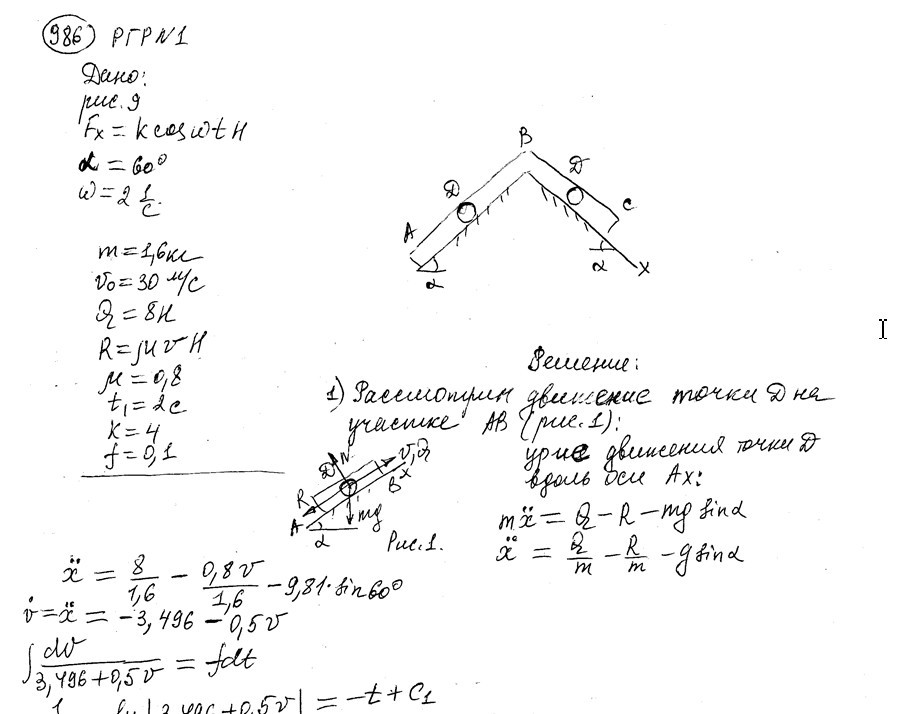 986 РГР N1
Дано:
рис. 9
Fx = k cos ωt Н
α = 60°
ω = 2 1/с
m = 1,6 кг
v₀ = 30 м/с
Q = 8Н
R = μv Н
μ = 0,8
t₁ = 2с
k = 4
f = 0,1
B
D
D
A
C
α
α
X
Решение:
1) Рассмотрим движение точки D на
участке AB (рис. 1):
ур-ие движения точки D
вдоль оси Ax:
mẍ = Q − R − mg sinα
ẍ = Q/m − R/m − g sinα
N
D
v, Q
B
x
R
A
mg
α
Рис. 1.
ẍ = 8/1,6 − 0,8v/1,6 − 9,81·sin60°
v̇ = ẍ = −3,496 − 0,5v
∫ dv/(3,496+0,5v) = −∫dt
ln|3,496+0,5v| = −t + C₁